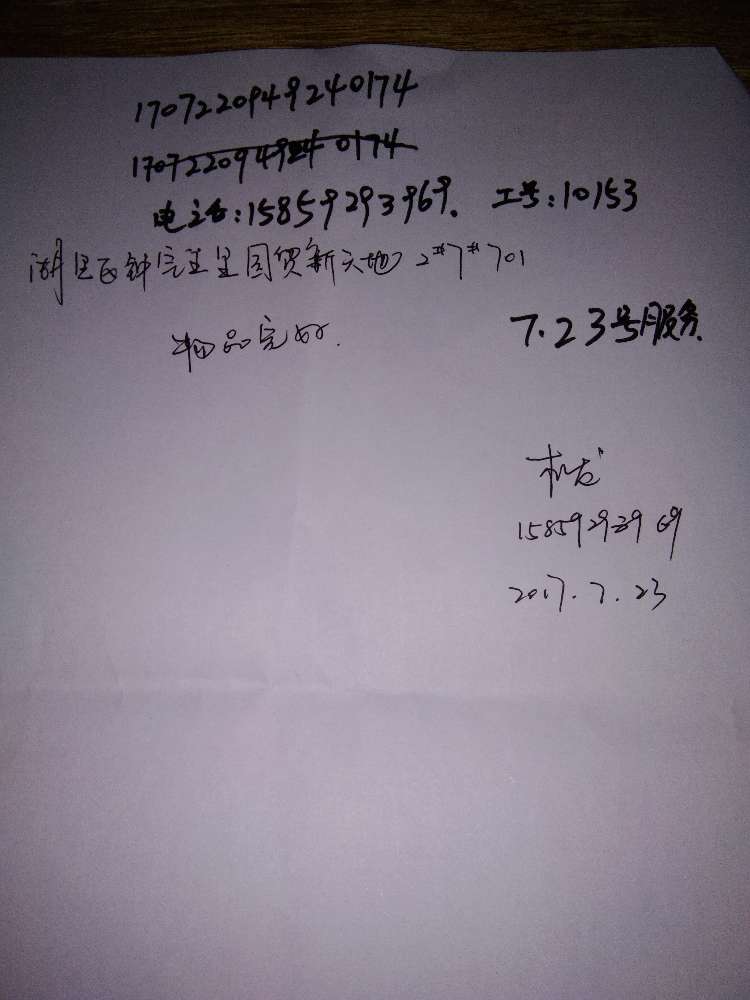 1707220949240174
1707220949240174
电话:15859293969. 工号:10153
湖里区钟宅某里国贸新天地 2#7#701
物品完好.
7.23号服务.
15859293969
2017.7.23